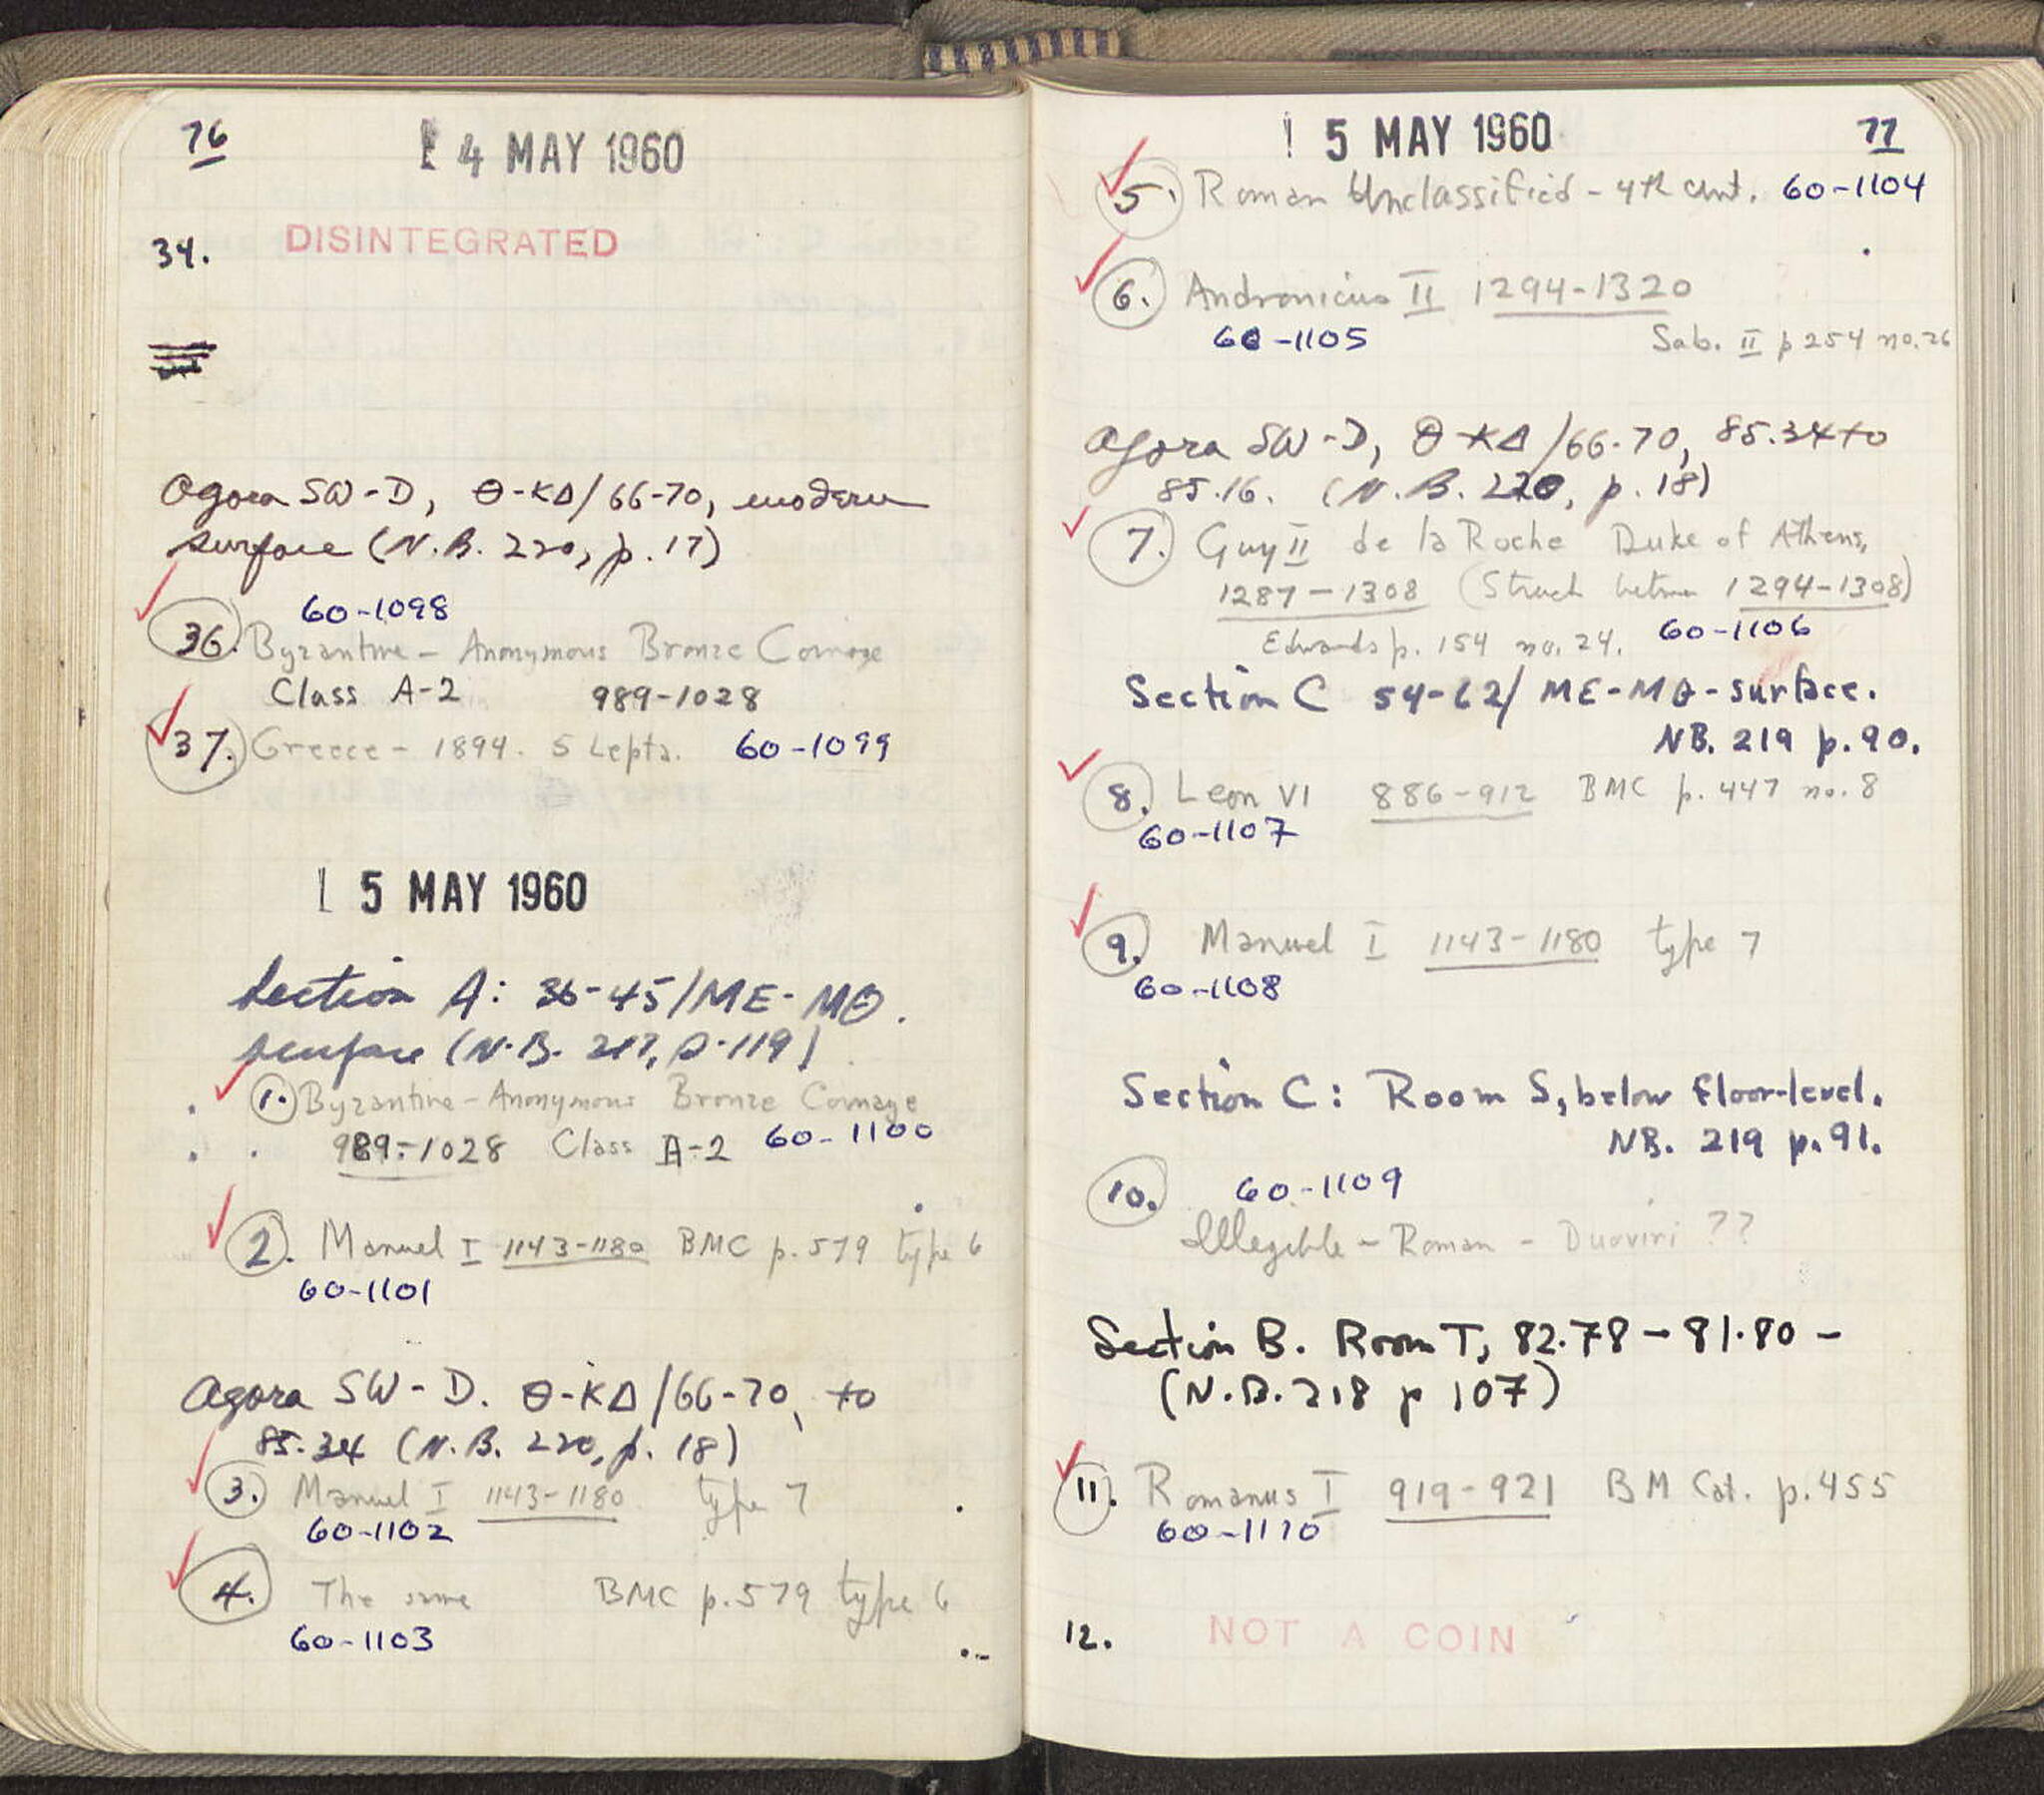 76
4 MAY 1960
34. DISINTEGRATED
Agora SW-D, Θ-ΚΔ/66-70, modern
surface (N.B. 220, p. 17)
60-1098
36. Byzantine - Anonymous Bronze Coinage
Class A-2 989-1028
37. Greece - 1894. 5 Lepta. 60-1099
5 MAY 1960
Section A: 36-45/ME-MΘ.
surface (N.B. 217, p. 119)
1. Byzantine - Anonymous Bronze Coinage
989-1028 Class A-2 60-1100
2. Manuel I 1143-1180 BMC p. 579 type 6
60-1101
Agora SW-D. Θ-ΚΔ/66-70, to
85.34 (N.B. 220, p. 18)
3. Manuel I 1143-1180 type 7
60-1102
4. The same BMC p. 579 type 6
60-1103
5 MAY 1960
77
5. Roman Unclassified - 4th cent. 60-1104
6. Andronicus II 1294-1320
60-1105 Sab. II p 254 no. 26
Agora SW-D, Θ-ΚΔ/66-70, 85.34 to
85.16. (N.B. 220, p. 18)
7. Guy II de la Roche Duke of Athens,
1287-1308 (Struck between 1294-1308)
Edwards p. 154 no. 24. 60-1106
Section C 54-62/ME-MΘ-surface.
NB. 219 p. 90.
8. Leon VI 886-912 BMC p. 447 no. 8
60-1107
9. Manuel I 1143-1180 type 7
60-1108
Section C: Room S, below floor-level.
NB. 219 p. 91.
10. 60-1109
Illegible - Roman - Duoviri ??
Section B. Room T, 82.78 - 81.80 -
(N.B. 218 p 107)
11. Romanus I 919-921 BM Cat. p. 455
60-1110
12. NOT A COIN